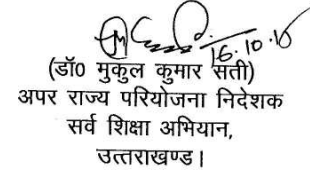 16.10.16
(डॉ0 मुकुल कुमार सती)
अपर राज्य परियोजना निदेशक
सर्व शिक्षा अभियान,
उत्तराखण्ड।